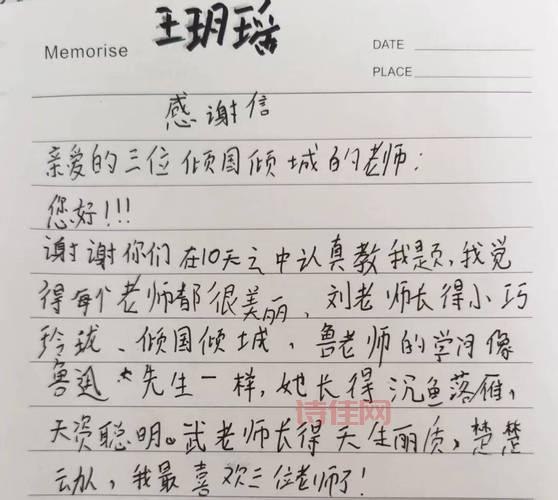 王玥瑶
Memorise
DATE
PLACE
感谢信
亲爱的三位倾国倾城的老师：
您好！！！
谢谢你们在10天之中认真教我题，我觉
得每个老师都很美丽，刘老师长得小巧
玲珑、倾国倾城，鲁老师的学问像
鲁迅先生一样，她长得沉鱼落雁，
天资聪明。武老师长得天生丽质，楚楚
动人，我最喜欢三位老师了！
诗佳网